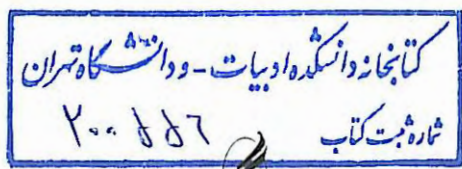 کتابخانه دانشکده ادبیات - و دانشگاه تهران
شماره ثبت کتاب ۲۰۰۵۵۶